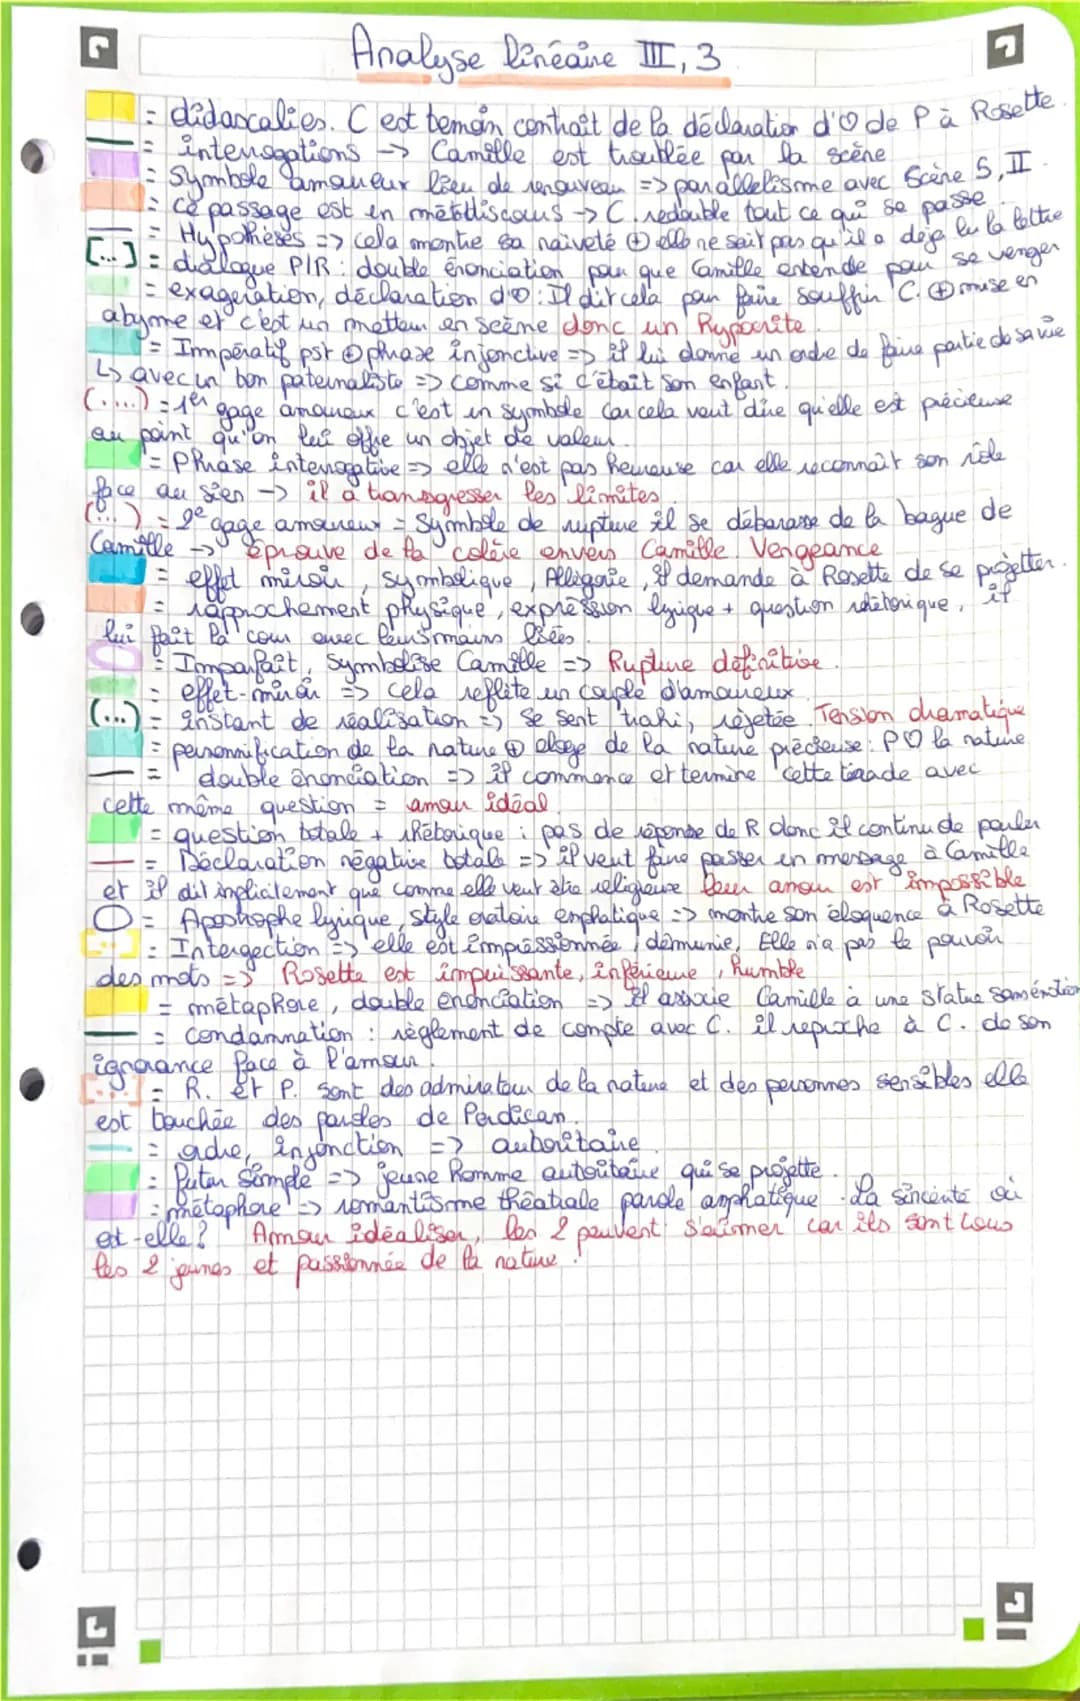 Analyse linéaire III, 3
= didascalies. C est temoin contraît de la déclaration d'♡ de P à Rosette.
= interrogations -> Camille est troublée par la scène
= Symbole amoureux lieu de renouveau => parallélisme avec Scène 5, II.
= ce passage est en métadiscours -> C. redouble tout ce qui se passe.
= Hypothèses => cela montre sa naiveté ⊕ elle ne sait pas qu'il a déjà lu la lettre
[...] = dialogue P/R : double énonciation pour que Camille entende pour se venger
= exageration, déclaration d'♡ : Il dit cela pour faire souffrir C. ⊕ mise en
abyme et c'est un metteur en scène donc un Hypocrite.
= Impératif pst ⊕ phrase injonctive => il lui donne un ordre de faire partie de sa vie
↳ avec un ton paternaliste => comme si c'était son enfant.
(.....) = 1er gage amoureux c'est un symbole car cela veut dire qu'elle est précieuse
au point qu'on lui offre un objet de valeur.
= Phrase interrogative => elle n'est pas heureuse car elle reconnaît son rôle
face au sien -> il a transgresser les limites.
(...) = 2e gage amoureux = Symbole de rupture il se débarasse de la bague de
Camille -> éprouve de la colère envers Camille. Vengeance
= effet miroir, symbolique, Allégorie, il demande à Rosette de se projetter.
= rapprochement physique, expression lyrique + question rhétorique, il
lui fait la cour avec leurs mains liées.
= Imparfait, Symbolise Camille => Rupture définitive.
= effet-miroir => cela reflète un couple d'amoureux
(...) = instant de réalisation => se sent trahi, rejetée. Tension dramatique
= personnification de la nature ⊕ éloge de la nature précieuse : P♡ la nature
= double énonciation => il commence et termine cette tirade avec
cette même question = amour idéal
= question totale + rhétorique : pas de réponse de R donc il continu de parler
= Déclaration négative totale => il veut faire passer un message à Camille
et il dit implicitement que comme elle veut être religieuse leur amour est impossible
= Apostrophe lyrique, style oratoire emphatique => montre son éloquence à Rosette
[...] = Intergection => elle est impressionnée, démunie, Elle n'a pas le pouvoir
des mots => Rosette est impuissante, inférieure, humble
= métaphore, double énonciation => Il associe Camille à une statue sans émotion
= condamnation : règlement de compte avec C. il reproche à C. de son
ignorance face à l'amour.
[...] = R. et P. sont des admirateur de la nature et des personnes sensibles elle
est touchée des paroles de Perdican.
= ordre, injonction => autoritaire
= futur simple => jeune homme autoritaire qui se projette.
= métaphore => romantisme théatrale parole amphatique. La sincérité où
est-elle ? Amour idéaliser, les 2 peuvent s'aimer car ils sont tous
les 2 jeunes et passionnée de la nature !